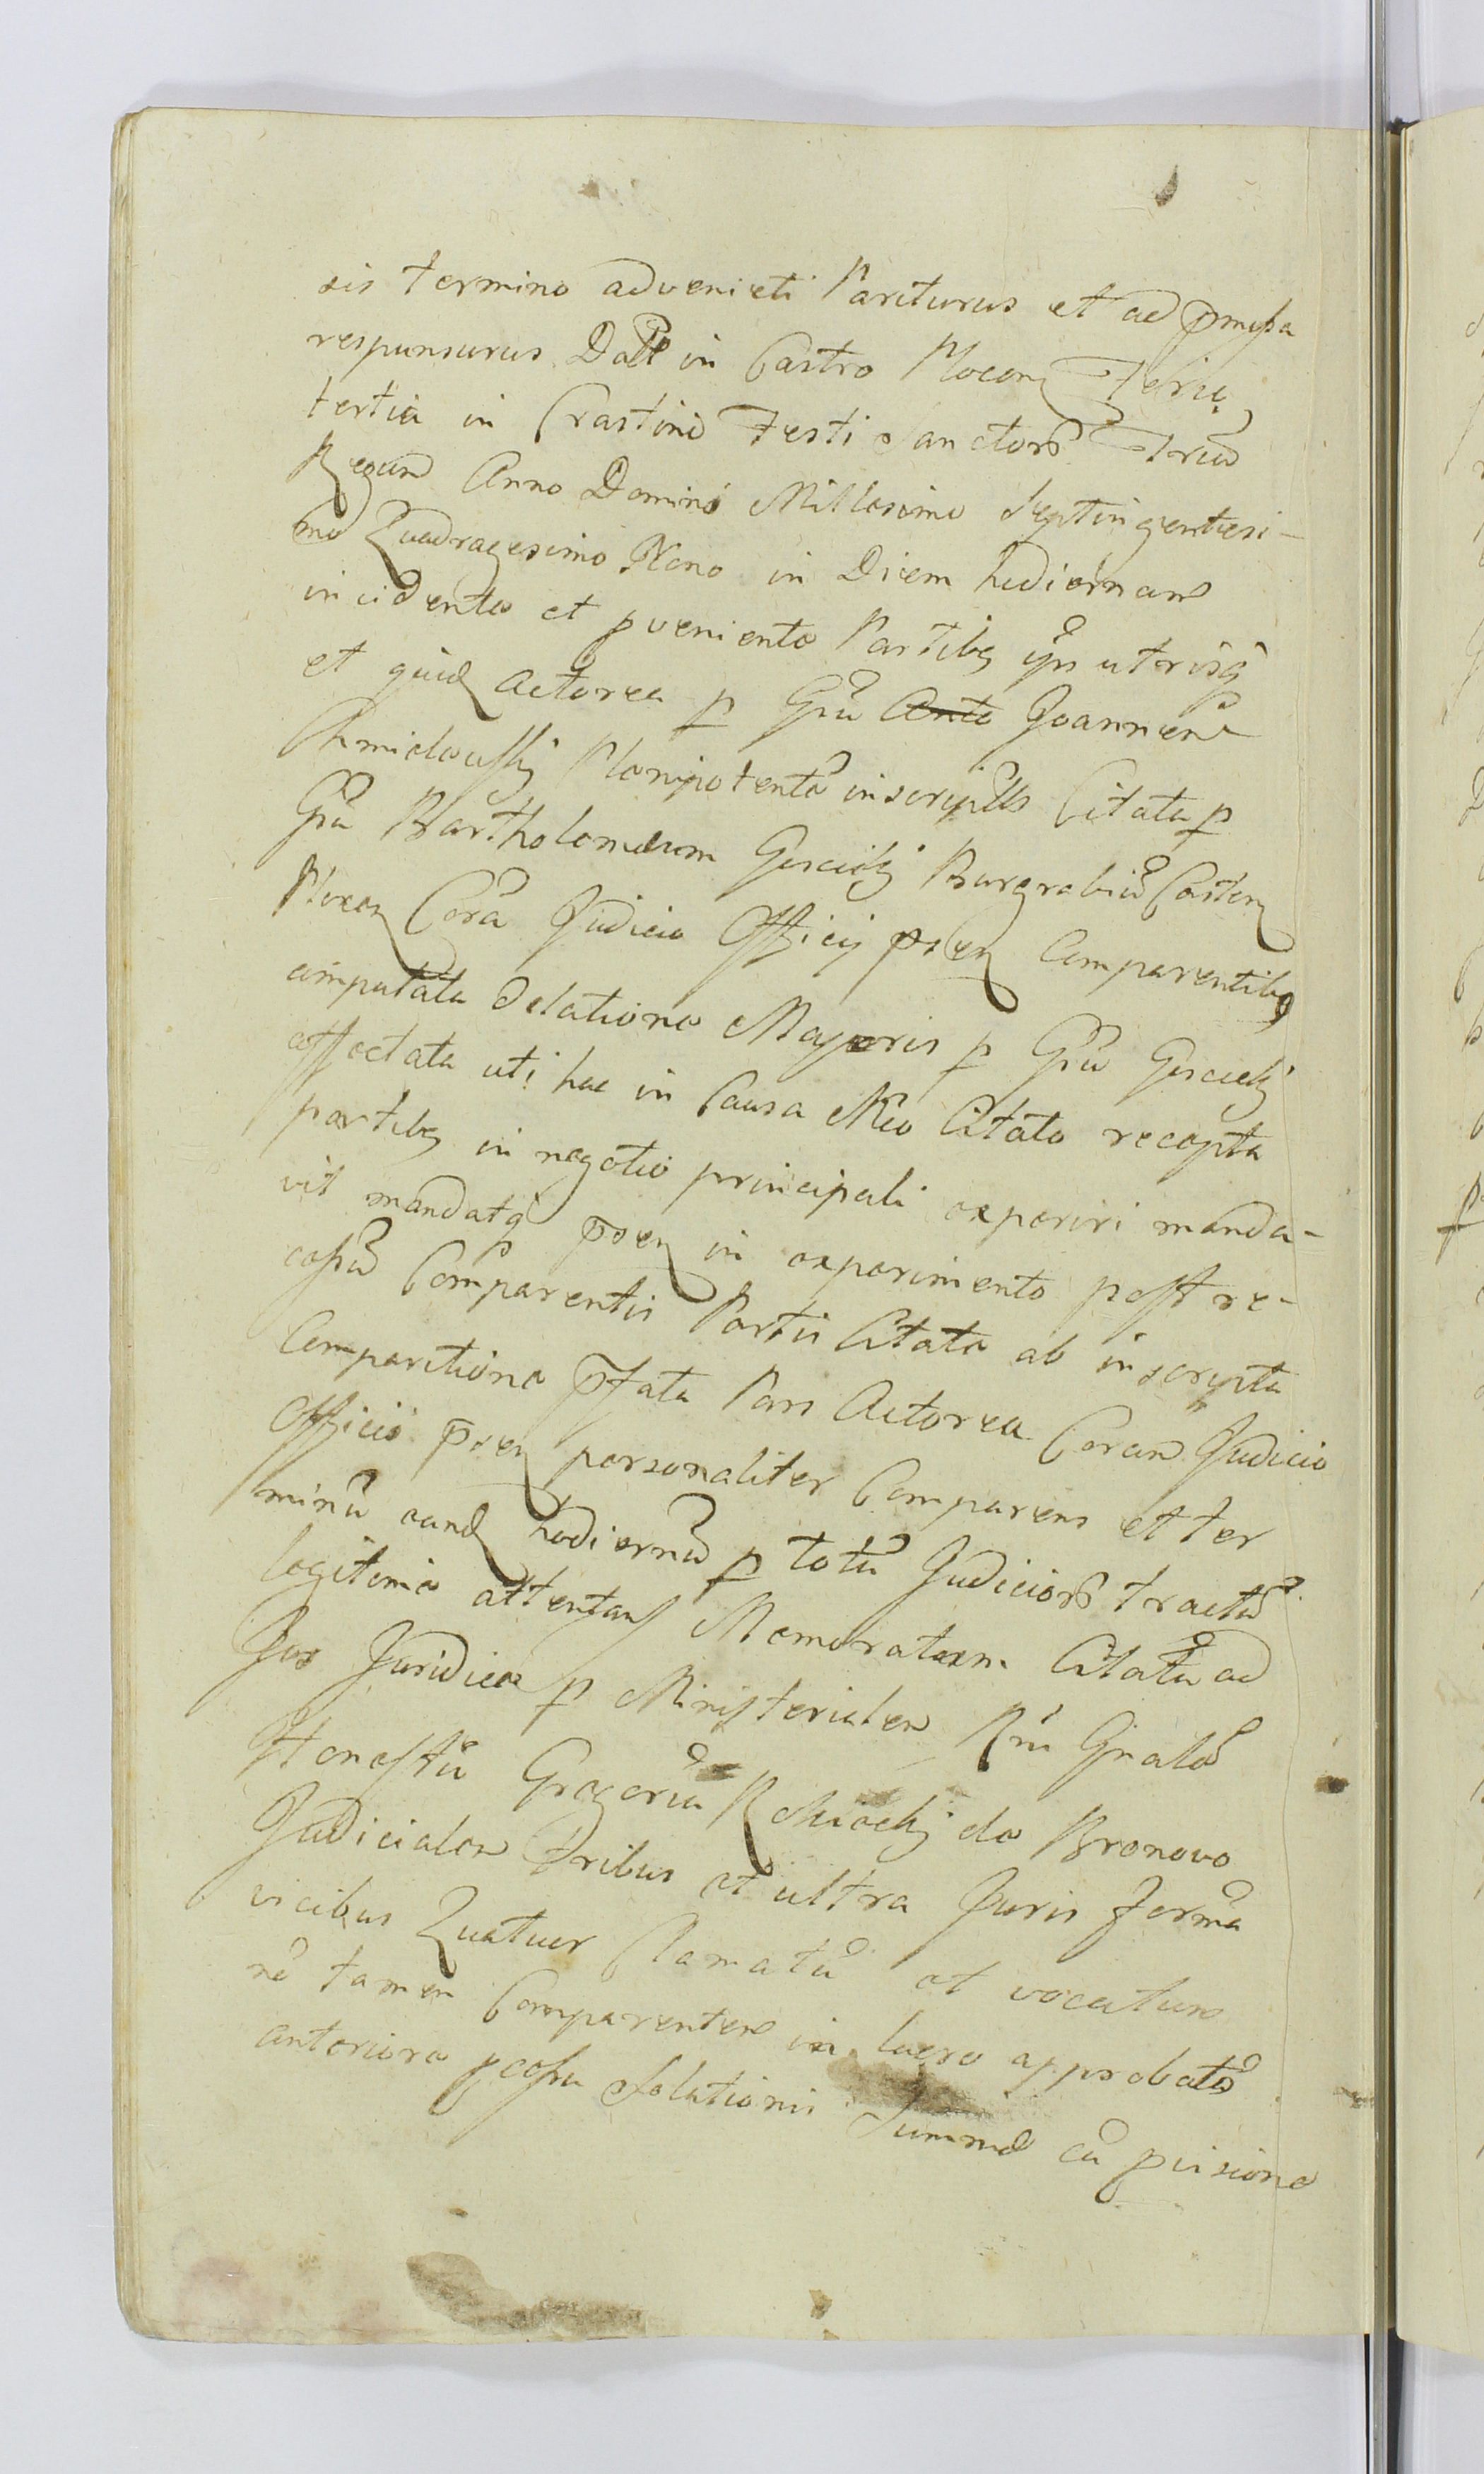 sis termino advenieti Pariturus et ad pmissa
responsurus Datt in Castro Plocen Feria
tertia in Crastino Festi Sanctorū Triū
Regum Anno Domini Millesimo Septingentesi-
mo Quadragesimo Nono in Diem hodiernam
incidente et pveniente Partibq ipis utrisq
et quid Actorea p Gsū Anto Joannem
Chmielewski Plenipotentē inscriptis Citata p
Gsū Bartholomeum Goscicki Burgrabiū Castren
Plocen Corā Judicio Officij psen Comparentibq
amputata dilatione Majoris p Gsū Goscicki
affectata uti hac in Causa Mco Citato recepta
partibq in negotio principali experiri manda-
vit mandatq psen in experimento post re-
cessū Comparentis Partis Citata ab inscripta
Comparitione pfata Pars Actorea Coram Judicio
Officio psen personaliter Comparens et ter
minū eund hodiernū p totū Judiciorū tractū
legitime attentans Memoratam Citatū ad
Jus Juridice p Ministerialem Rni Gnalē
Honestū Gregoriū Rokicki de Bronowo
Judicialem tribus et ultra Juris formā
vicibus Quatuor Clamatū et vocatum
nō tamen Comparentem in lucro approbatō
anteriore pcessu Solutionis Summæ cū pvisione